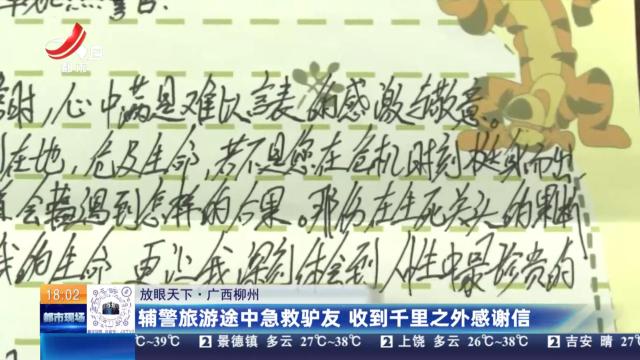 时,心中满是难以言表的感激与敬意。
倒在地,危及生命,若不是您在危机时刻挺身而出
会遭遇到怎样的后果。那份在生死关头的果断
我的生命 更让我深刻体会到人性中最珍贵的
都市
18:02
放眼天下·广西柳州
都市现场
辅警旅游途中急救驴友 收到千里之外感谢信
22℃~39℃ 2 景德镇 多云 27℃~38℃ 2 上饶 多云 26℃~38℃ 2 吉安 晴